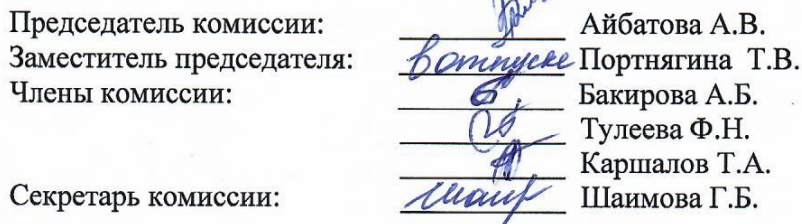 Председатель комиссии: Айбатова А.В.
Заместитель председателя: в отпуске Портнягина Т.В.
Члены комиссии: Бакирова А.Б.
Тулеева Ф.Н.
Каршалов Т.А.
Секретарь комиссии: Шаимова Г.Б.